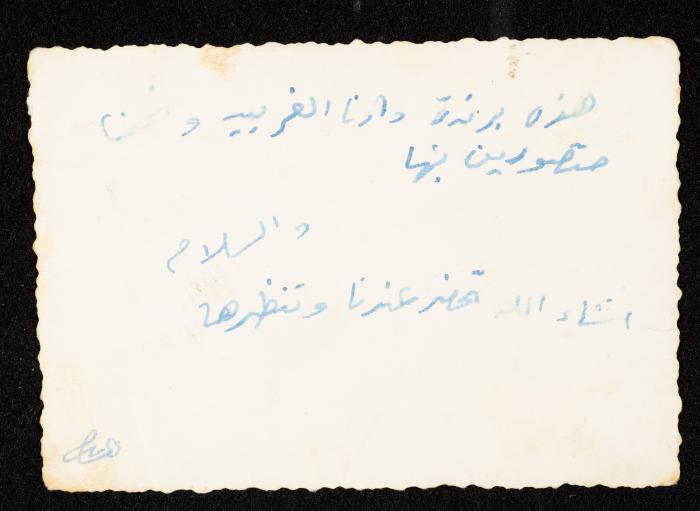 هذه برندة دارنا الغربيه ونحنا
متصورين بها
والسلام
انشاء الله تحضر عندنا وتنظرها